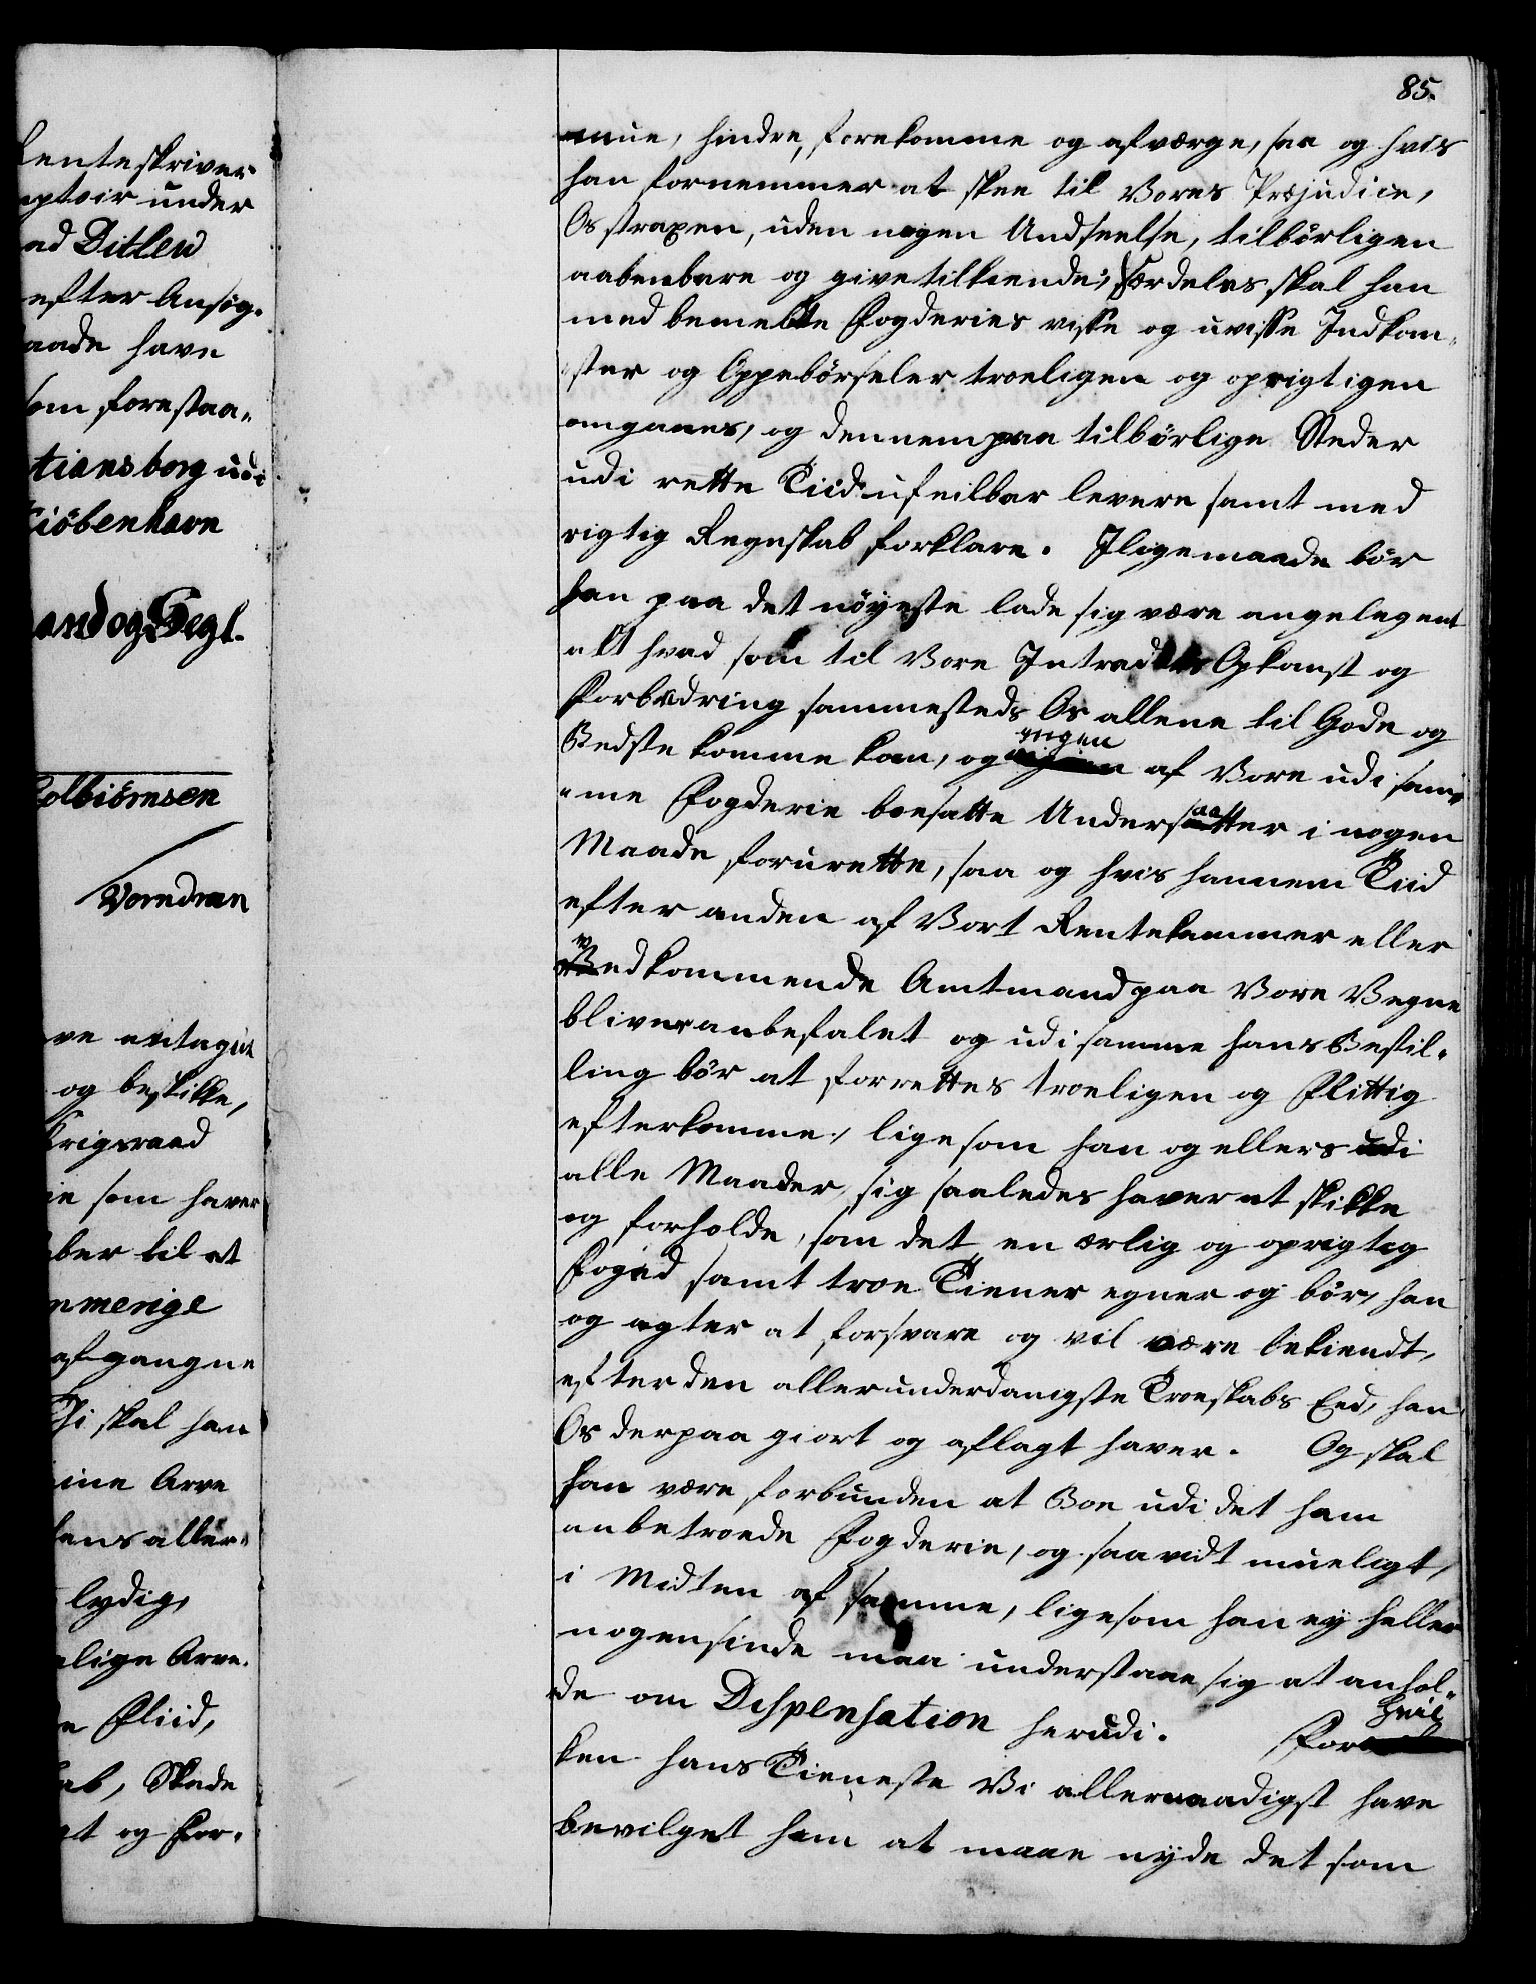 Renteskriver
ptoir under
ad Ditlev
efter Ansøg-
aade have
som forestaa-
tiansborg udi
Kiöbenhavn
and og Segl.
Colbiörnsen
Vorndran
ve antaget
og beskikke,
Krigsraad
ie som haver
ber til at
nmerige
afgangne
Thi skal han
ine Arve
ens aller-
lydig,
lige Arve-
n Fliid,
ab, Skade
at og For-
85.
mue, hindre, forekomme og afværge, saa og hvis
han fornemmer at skee til Vores Præjudice,
Os straxen, uden nogen Undseelse, tilbörligen
aabenbare og give tilkiende; Særdeles skal han
med bemelte Fogderies visse og uvisse Indkom-
ster og Oppebörseler troeligen og oprigtigen
omgaaes, og dennem paa tilbörlige Steder
udi rette Tiid ufeilbar levere samt med
rigtig Regnskab forklare. Iligemaade bör
han paa det nöyeste lade sig være angelegent
alt hvad som til Vore Intraders Opkomst og
Forbedring sammesteds Os allene til Gode og
Bedste komme kan, og ingen af Vore udi sam-
me Fogderie boesatte Undersaatter i nogen
Maade forurette, saa og hvis hannem Tiid
efter anden af Vort Rentekammer eller
vedkommende Amtmand paa Vore Vegne
bliver anbefalet og udi samme hans Bestil-
ling bör at forrettes troeligen og flittig
efterkomme, ligesom han og ellers udi
alle Maader sig saaledes haver at skikke
og forholde, som det en ærlig og oprigtig
Foged samt troe Tiener egner og bör, han
og agter at forsvare og vil være bekiendt,
efter den allerunderdanigste Troeskabs Eed, han
Os derpaa giort og aflagt haver. Og skal
han være forbunden at Boe udi det ham
anbetroede Fogderie, og saavidt mueligt,
i Midten af samme, ligesom han ey heller
nogensinde maa understaae sig at anhol-
de om Dispensation herudi. For hvil
ken hans Tieneste Vi allernaadigst have
bevilget ham at maae nyde det som